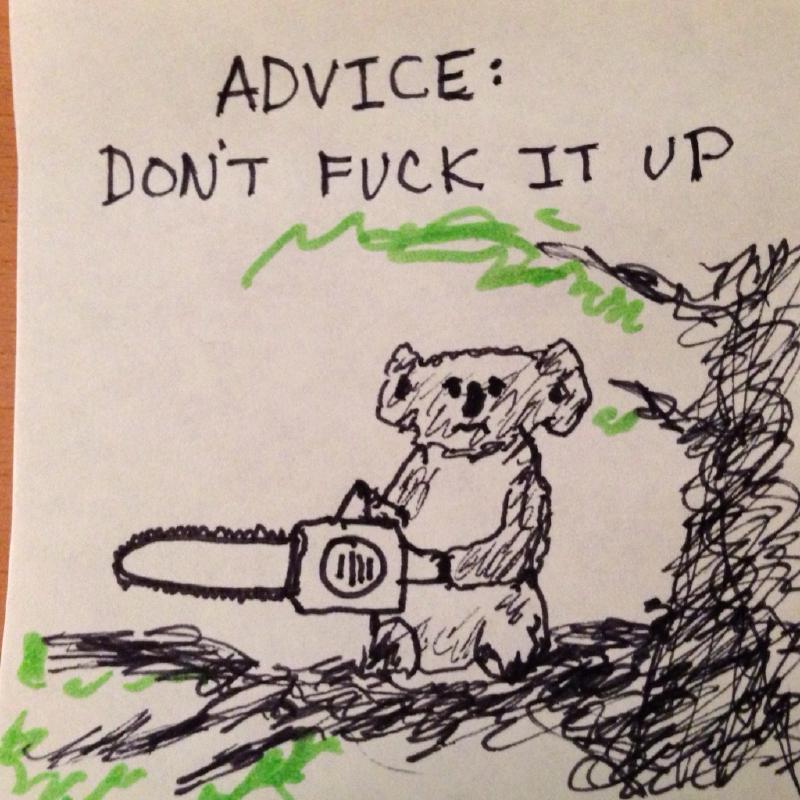 ADVICE:
DON'T FUCK IT UP